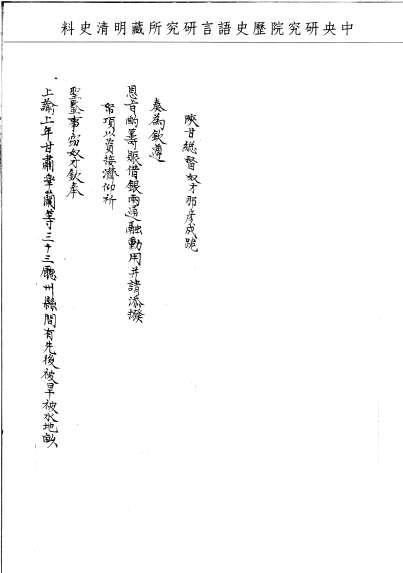 中央研究院歷史語言研究所藏明清史料
陝甘總督奴才那彥成跪
奏為欽遵
恩旨酌籌賑借銀兩通融動用并請添撥
帑項以資接濟仰祈
聖鑒事竊奴才欽奉
上諭上年甘肅皋蘭等三十三廳州縣間有先後被旱被水地畝